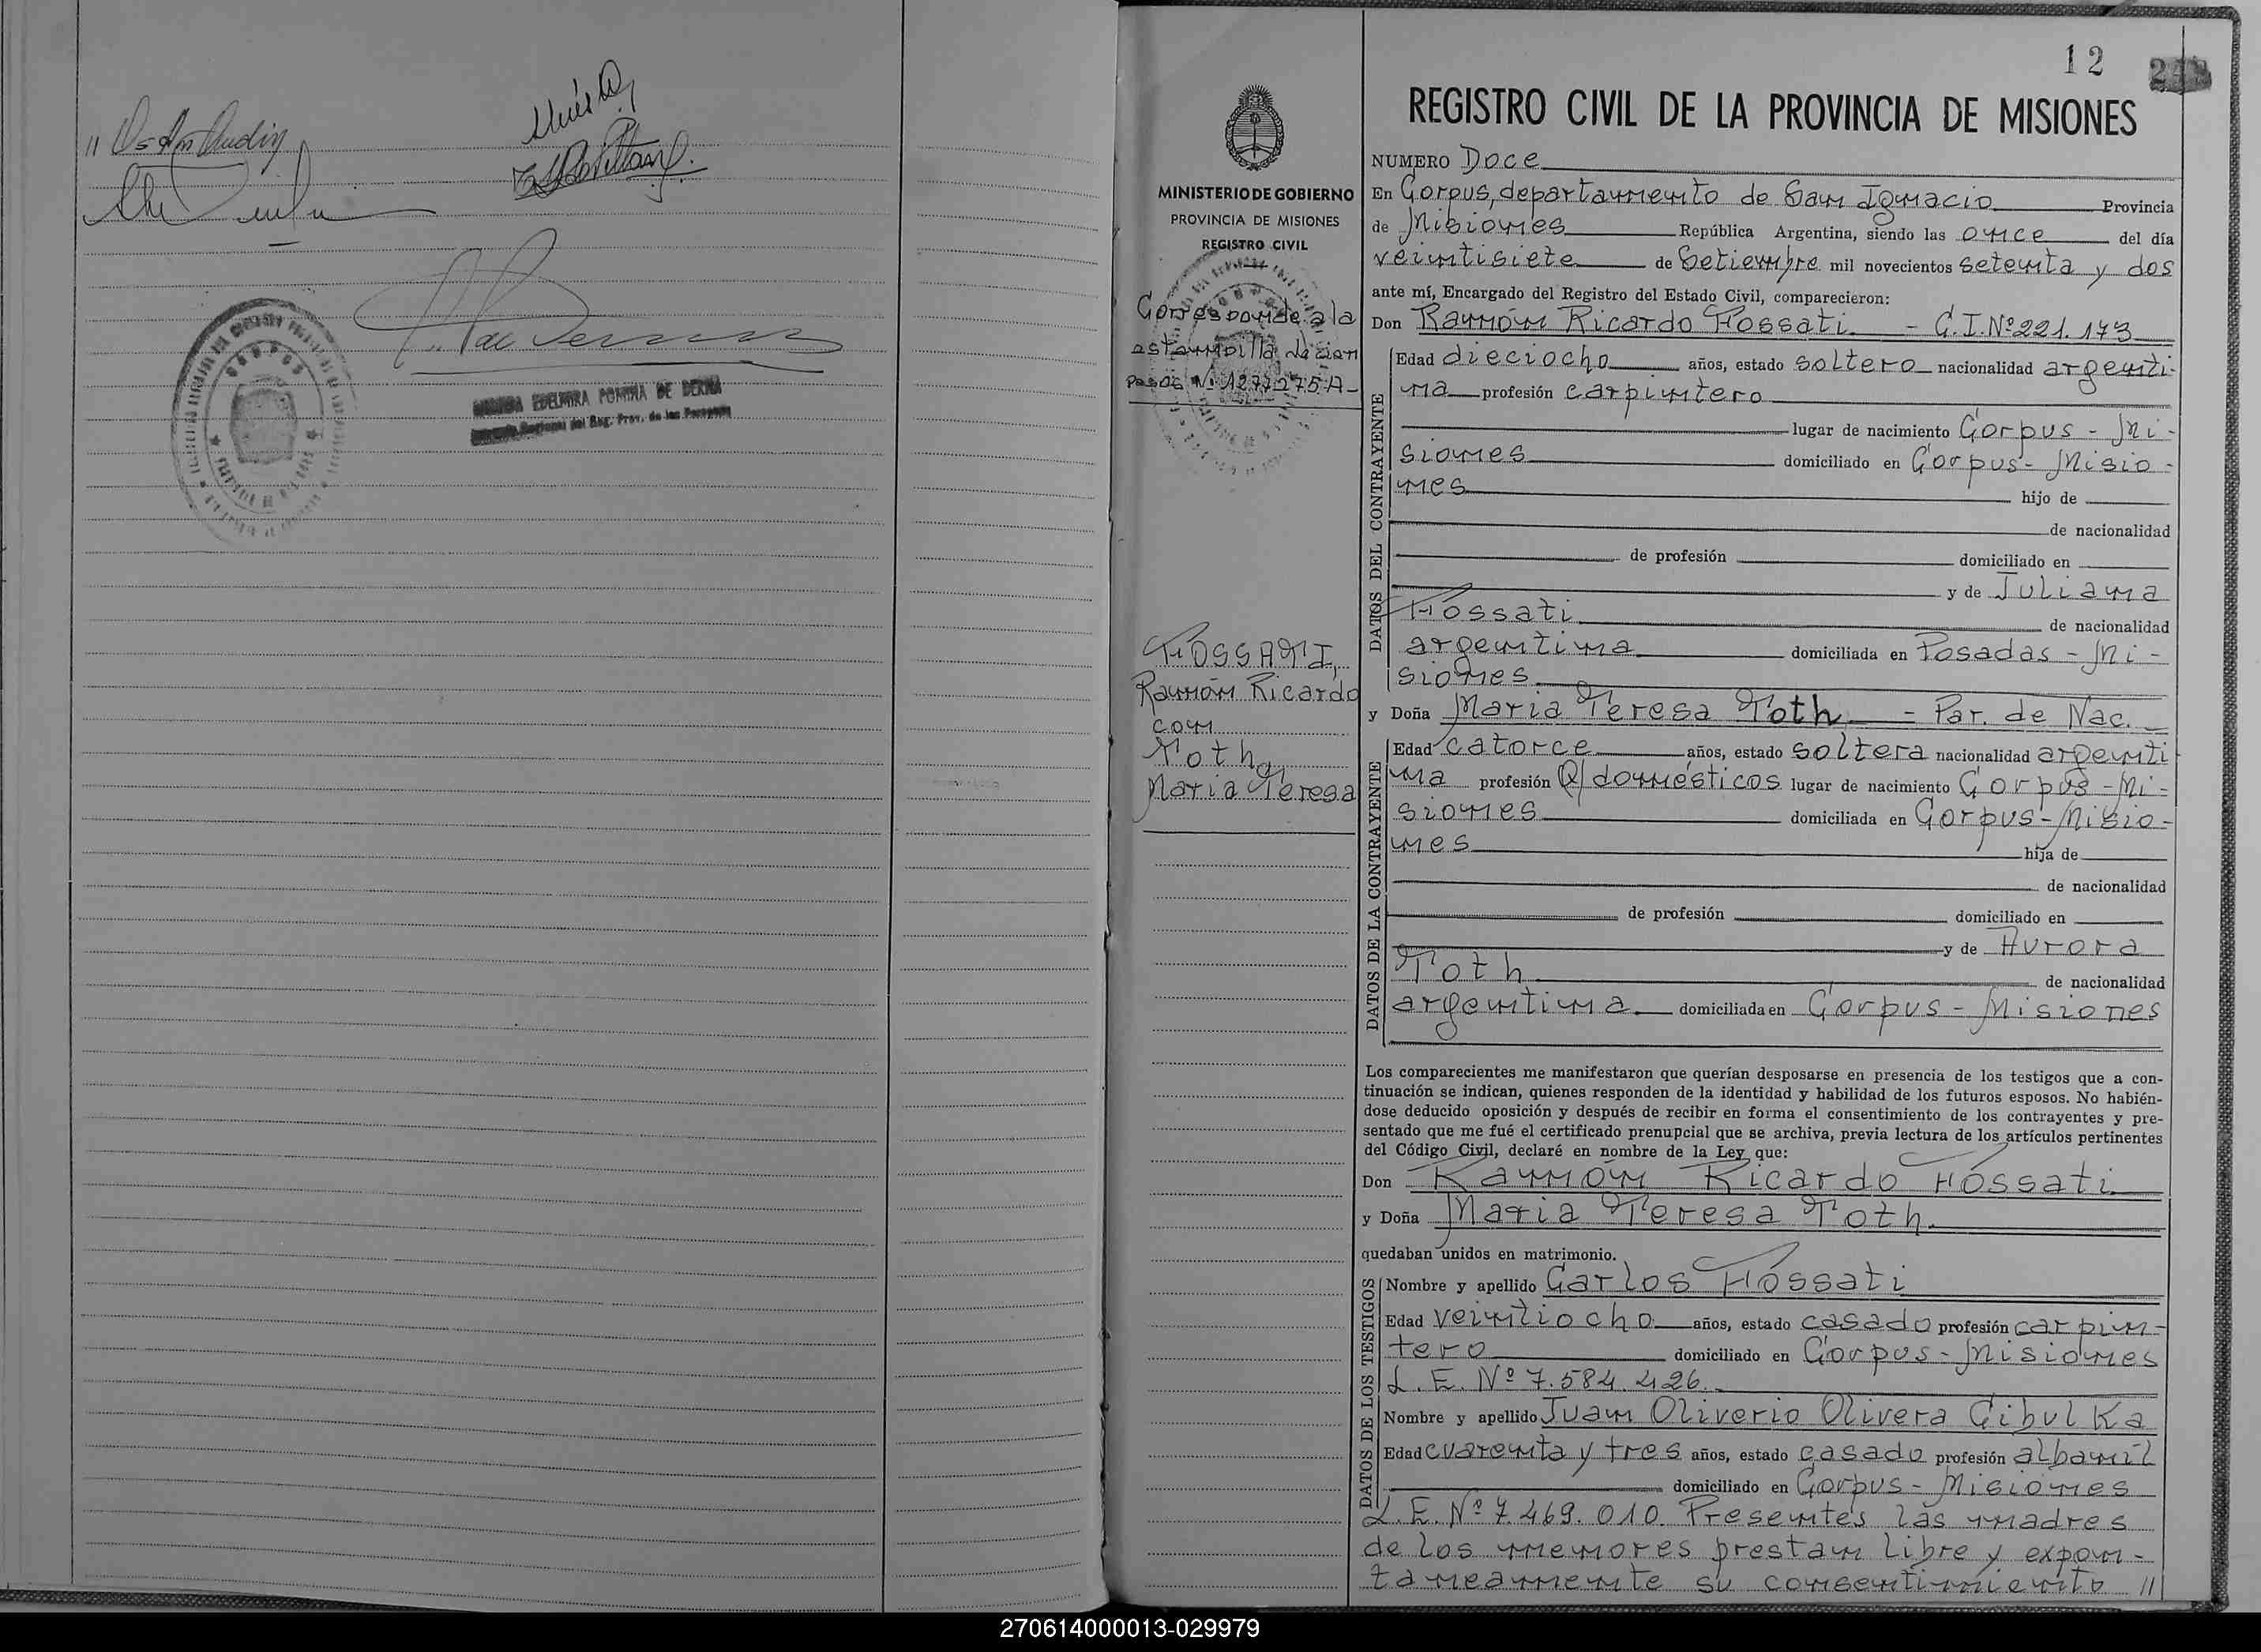 REGISTRA EDELMIRA POMINA DE DERNA
Regional del Reg. Prov. de las Personas
12
MINISTERIO DE GOBIERNO
PROVINCIA DE MISIONES
REGISTRO CIVIL
Corresponde a la
estampilla de cien
pesos Nº 1277275A-
FOSSATI,
Ramón Ricardo
con
Toth,
Maria Teresa
REGISTRO CIVIL DE LA PROVINCIA DE MISIONES
NUMERO Doce
En Corpus, departamento de San Ignacio Provincia
de Misiones República Argentina, siendo las once del día
veintisiete de Setiembre mil novecientos setenta y dos
ante mí, Encargado del Registro del Estado Civil, comparecieron:
Don Ramón Ricardo Fossati - C.I.Nº221.173
DATOS DEL CONTRAYENTE
Edad dieciocho años, estado soltero nacionalidad argenti-
na profesión carpintero
lugar de nacimiento Corpus - Mi-
siones domiciliado en Corpus - Misio-
nes hijo de
de nacionalidad
de profesión domiciliado en
y de Juliana
Fossati de nacionalidad
argentina domiciliada en Posadas - Mi-
siones
y Doña Maria Teresa Toth - Par. de Nac.
DATOS DE LA CONTRAYENTE
Edad catorce años, estado soltera nacionalidad argenti
na profesión Q/domésticos lugar de nacimiento Corpus - Mi-
siones domiciliada en Corpus - Misio-
nes hija de
de nacionalidad
de profesión domiciliado en
y de Aurora
Toth de nacionalidad
argentina domiciliada en Corpus - Misiones
Los comparecientes me manifestaron que querían desposarse en presencia de los testigos que a con-
tinuación se indican, quienes responden de la identidad y habilidad de los futuros esposos. No habién-
dose deducido oposición y después de recibir en forma el consentimiento de los contrayentes y pre-
sentado que me fué el certificado prenupcial que se archiva, previa lectura de los artículos pertinentes
del Código Civil, declaré en nombre de la Ley que:
Don Ramón Ricardo Fossati
y Doña Maria Teresa Toth
quedaban unidos en matrimonio.
DATOS DE LOS TESTIGOS
Nombre y apellido Carlos Fossati
Edad veintiocho años, estado casado profesión carpin-
tero domiciliado en Corpus - Misiones
L.E. Nº 7.584.426.
Nombre y apellido Juan Oliverio Olivera Cibulka
Edad cuarenta y tres años, estado casado profesión albañil
domiciliado en Corpus - Misiones
L.E. Nº 7.469.010. Presentes las madres
de los menores prestan libre y expon-
taneamente su consentimiento //
270614000013-029979